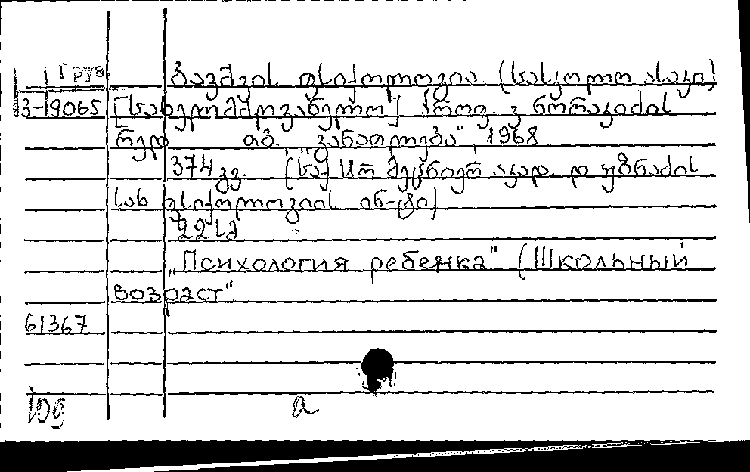 Груз
ბავშვის ფსიქოლოგია (სასკოლო ასაკი)
3-19065 [სახელმძღვანელო] პროფ ვ ნორაკიძის
რედ თბ. "განათლება", 1968
374 გვ. (საქ სსრ მეცნიერ აკად. დ უზნაძის
სახ ფსიქოლოგიის ინ-ტი)
"Психология ребенка" (Школьный
возраст"
61367
а